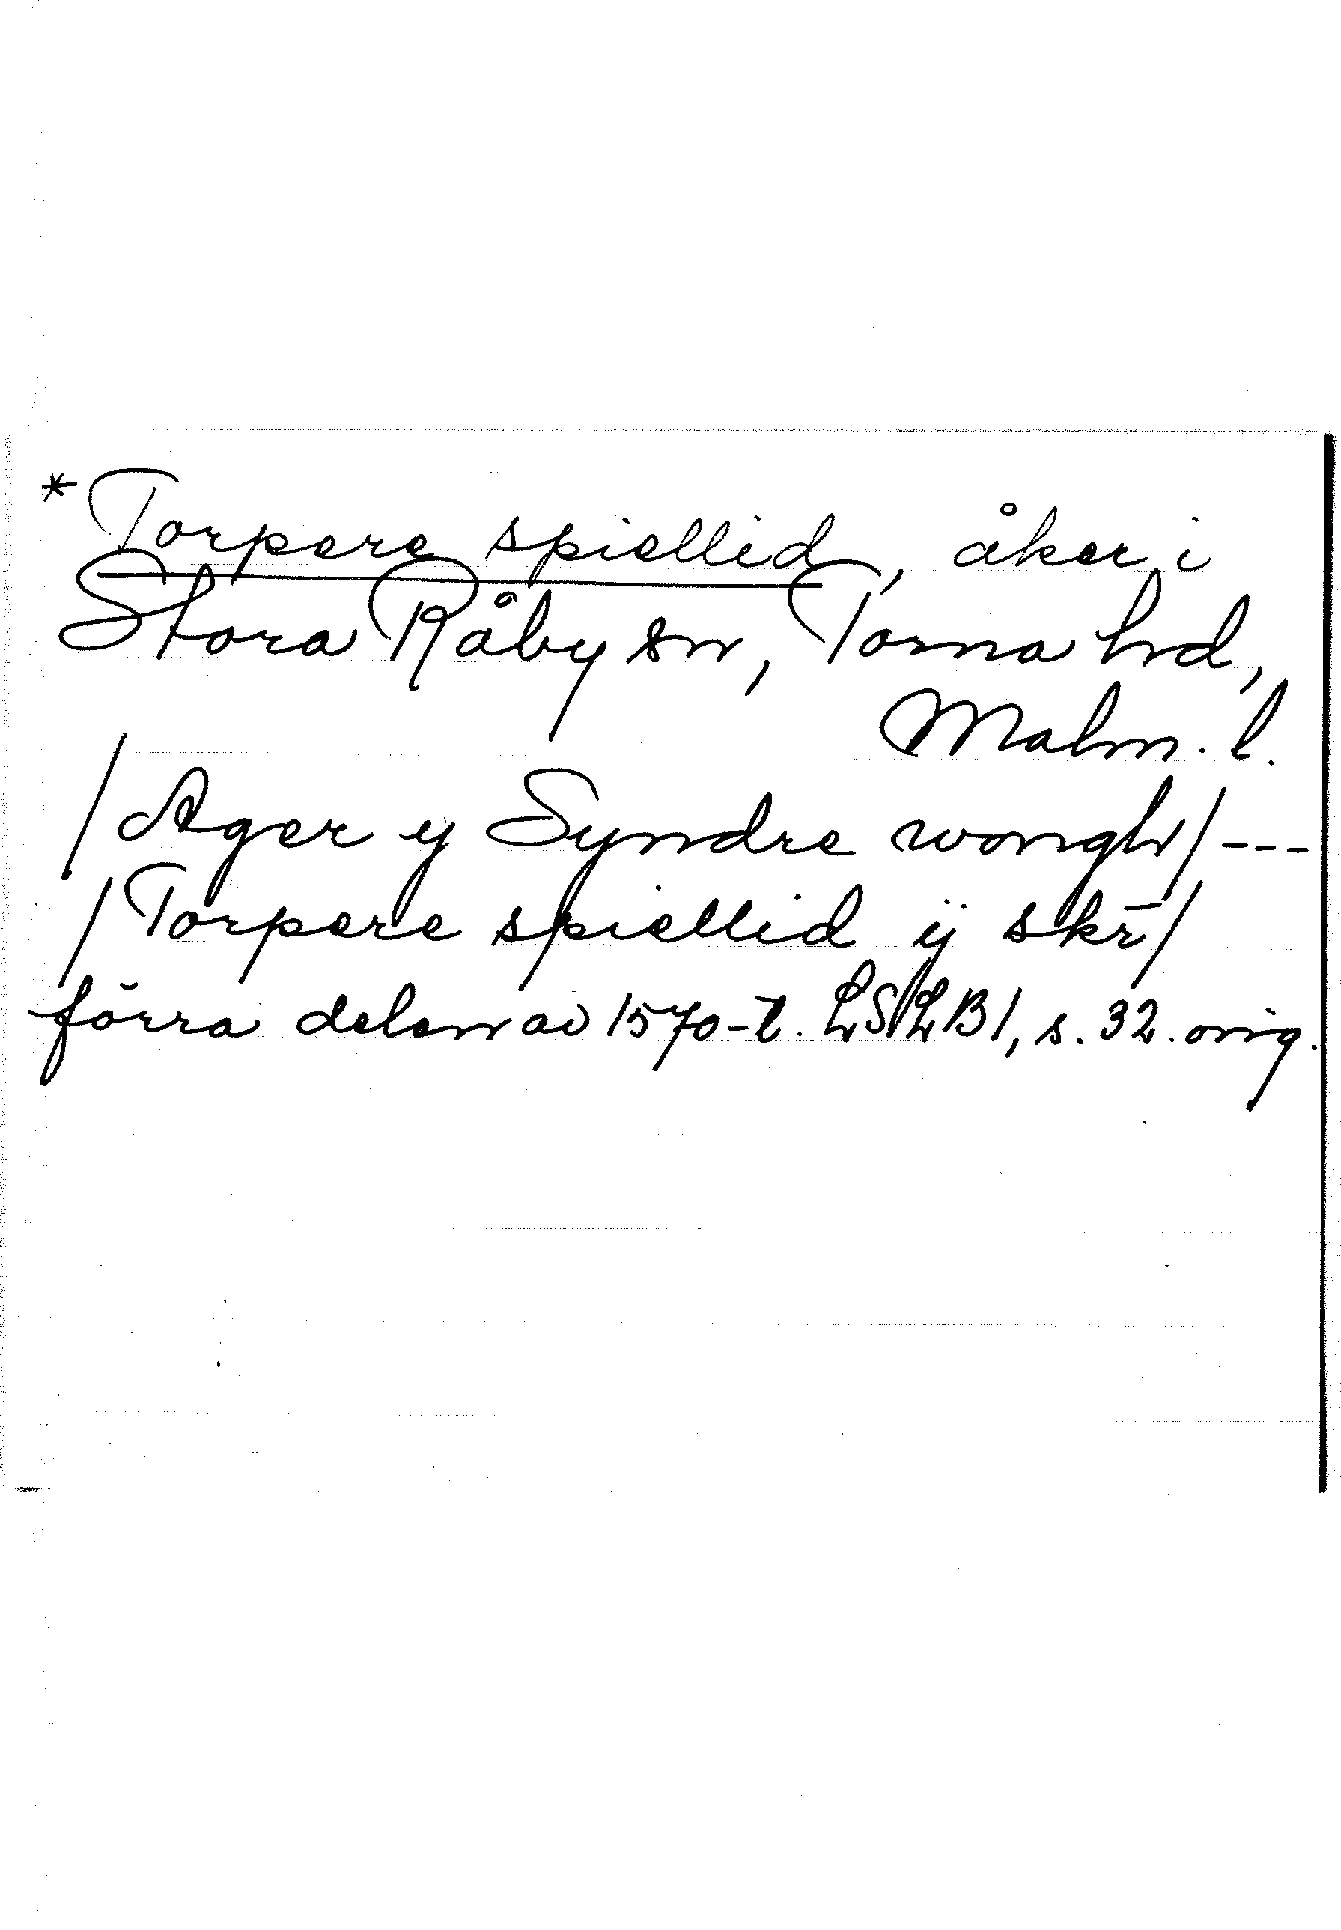 *Torpere spiellid, åker i
Stora Råby sn, Torna hd,
Malm. l.
/Ager y Syndre wongh/ ---
/Torpere spiellid ij skr̄/
förra delen av 1570-t. LSLB1, s. 32. orig.